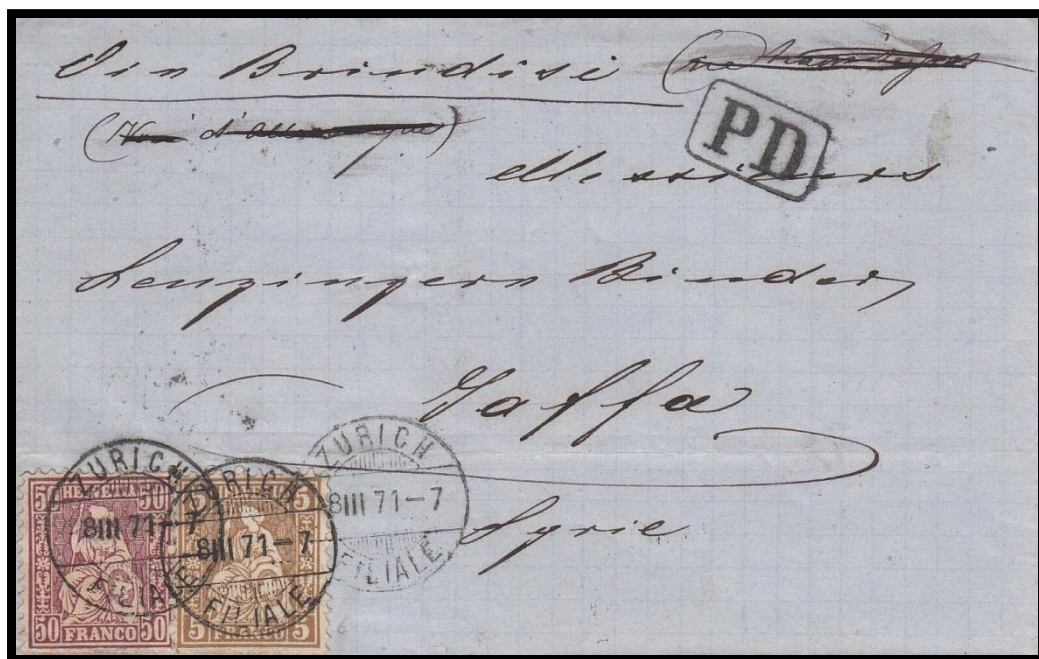 Via Brindisi
P.D
Messieurs
Lenzinger & Binder,
Jaffa
Syrie
ZURICH
8III 71-7
FILIALE
ZURICH
8III 71-7
FILIALE
ZURICH
8III 71-7
FILIALE
50 HELVETIA 50
50 FRANCO 50
5 5
5 FRANCO 5